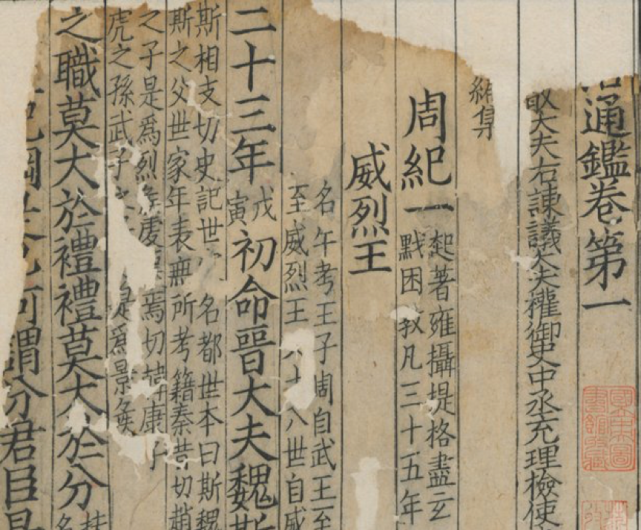 通鑑卷第一
大夫右諫議大夫權御史中丞充理檢使
編集
周紀一
起著雍攝提格盡玄
黓困敦凡三十五年
威烈王
名午考王子周自武王至
至威烈王 十八世自威
二十三年
戊
寅
初命晉大夫魏斯
名都世本曰斯魏
斯相支切史記世
斯之父世家年表無所考籍秦昔切趙
之子是爲烈侯虔 焉切韓康子
虎之孫武子 是爲景侯
之職莫大於禮禮莫大於分
何謂分君臣是